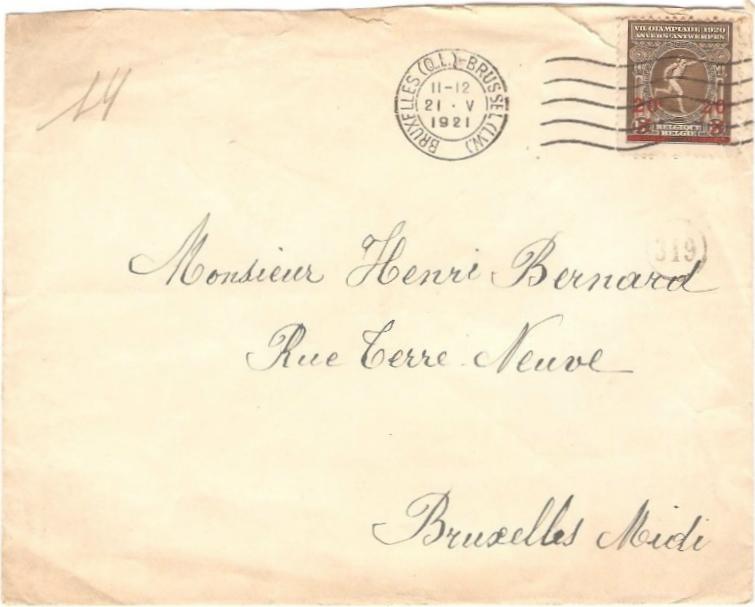 14
BRUXELLES (Q.L.)-BRUSSEL (L.W.)
11-12
21 · V
1921
VII·OLYMPIADE 1920
ANVERS·ANTWERPEN
20 20
BELGIQUE
BELGIË
319
Monsieur Henri Bernard
Rue Terre-Neuve
Bruxelles Midi